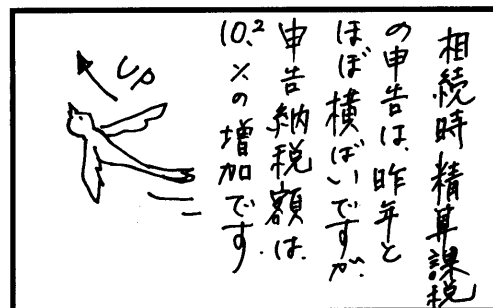 相続時精算課税
の申告は、昨年と
ほぼ横ばいですが、
申告納税額は、
10.2%の増加です.
up